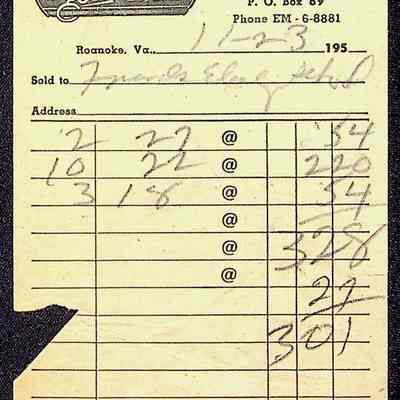 P. O. Box 69
Phone EM - 6-8881
Roanoke, Va., 11-23 195
Sold to Friends Elem School
Address
2 27 @ 54
10 22 @ 220
3 18 @ 54
@
@ 328
@
27
301